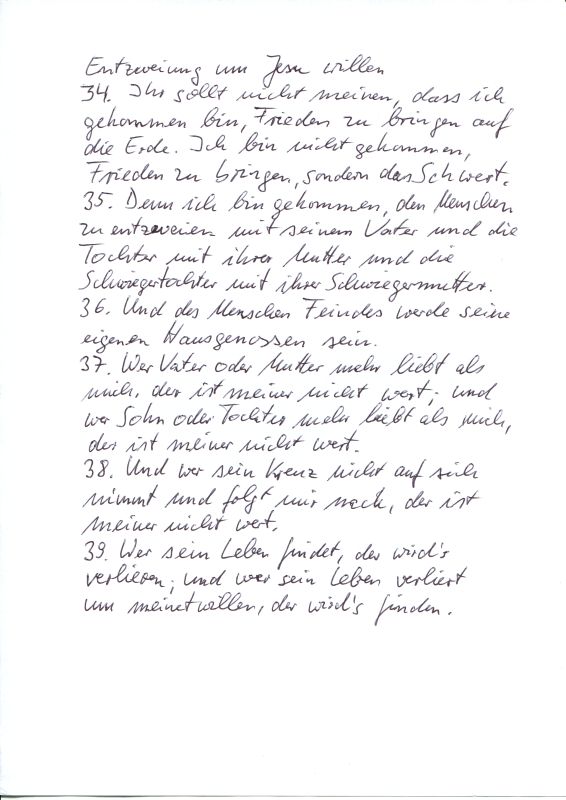 Entzweiung um Jesu willen
34. Ihr sollt nicht meinen, dass ich
gekommen bin, Frieden zu bringen auf
die Erde. Ich bin nicht gekommen,
Frieden zu bringen, sondern das Schwert.
35. Denn ich bin gekommen, den Menschen
zu entzweien mit seinem Vater und die
Tochter mit ihrer Mutter und die
Schwiegertochter mit ihrer Schwiegermutter.
36. Und des Menschen Feindes werde seine
eigenen Hausgenossen sein.
37. Wer Vater oder Mutter mehr liebt als
mich, der ist meiner nicht wert; und
wer Sohn oder Tochter mehr liebt als mich,
der ist meiner nicht wert.
38. Und wer sein Kreuz nicht auf sich
nimmt und folgt mir nach, der ist
meiner nicht wert.
39. Wer sein Leben findet, der wird's
verlieren; und wer sein Leben verliert
um meinetwillen, der wird's finden.